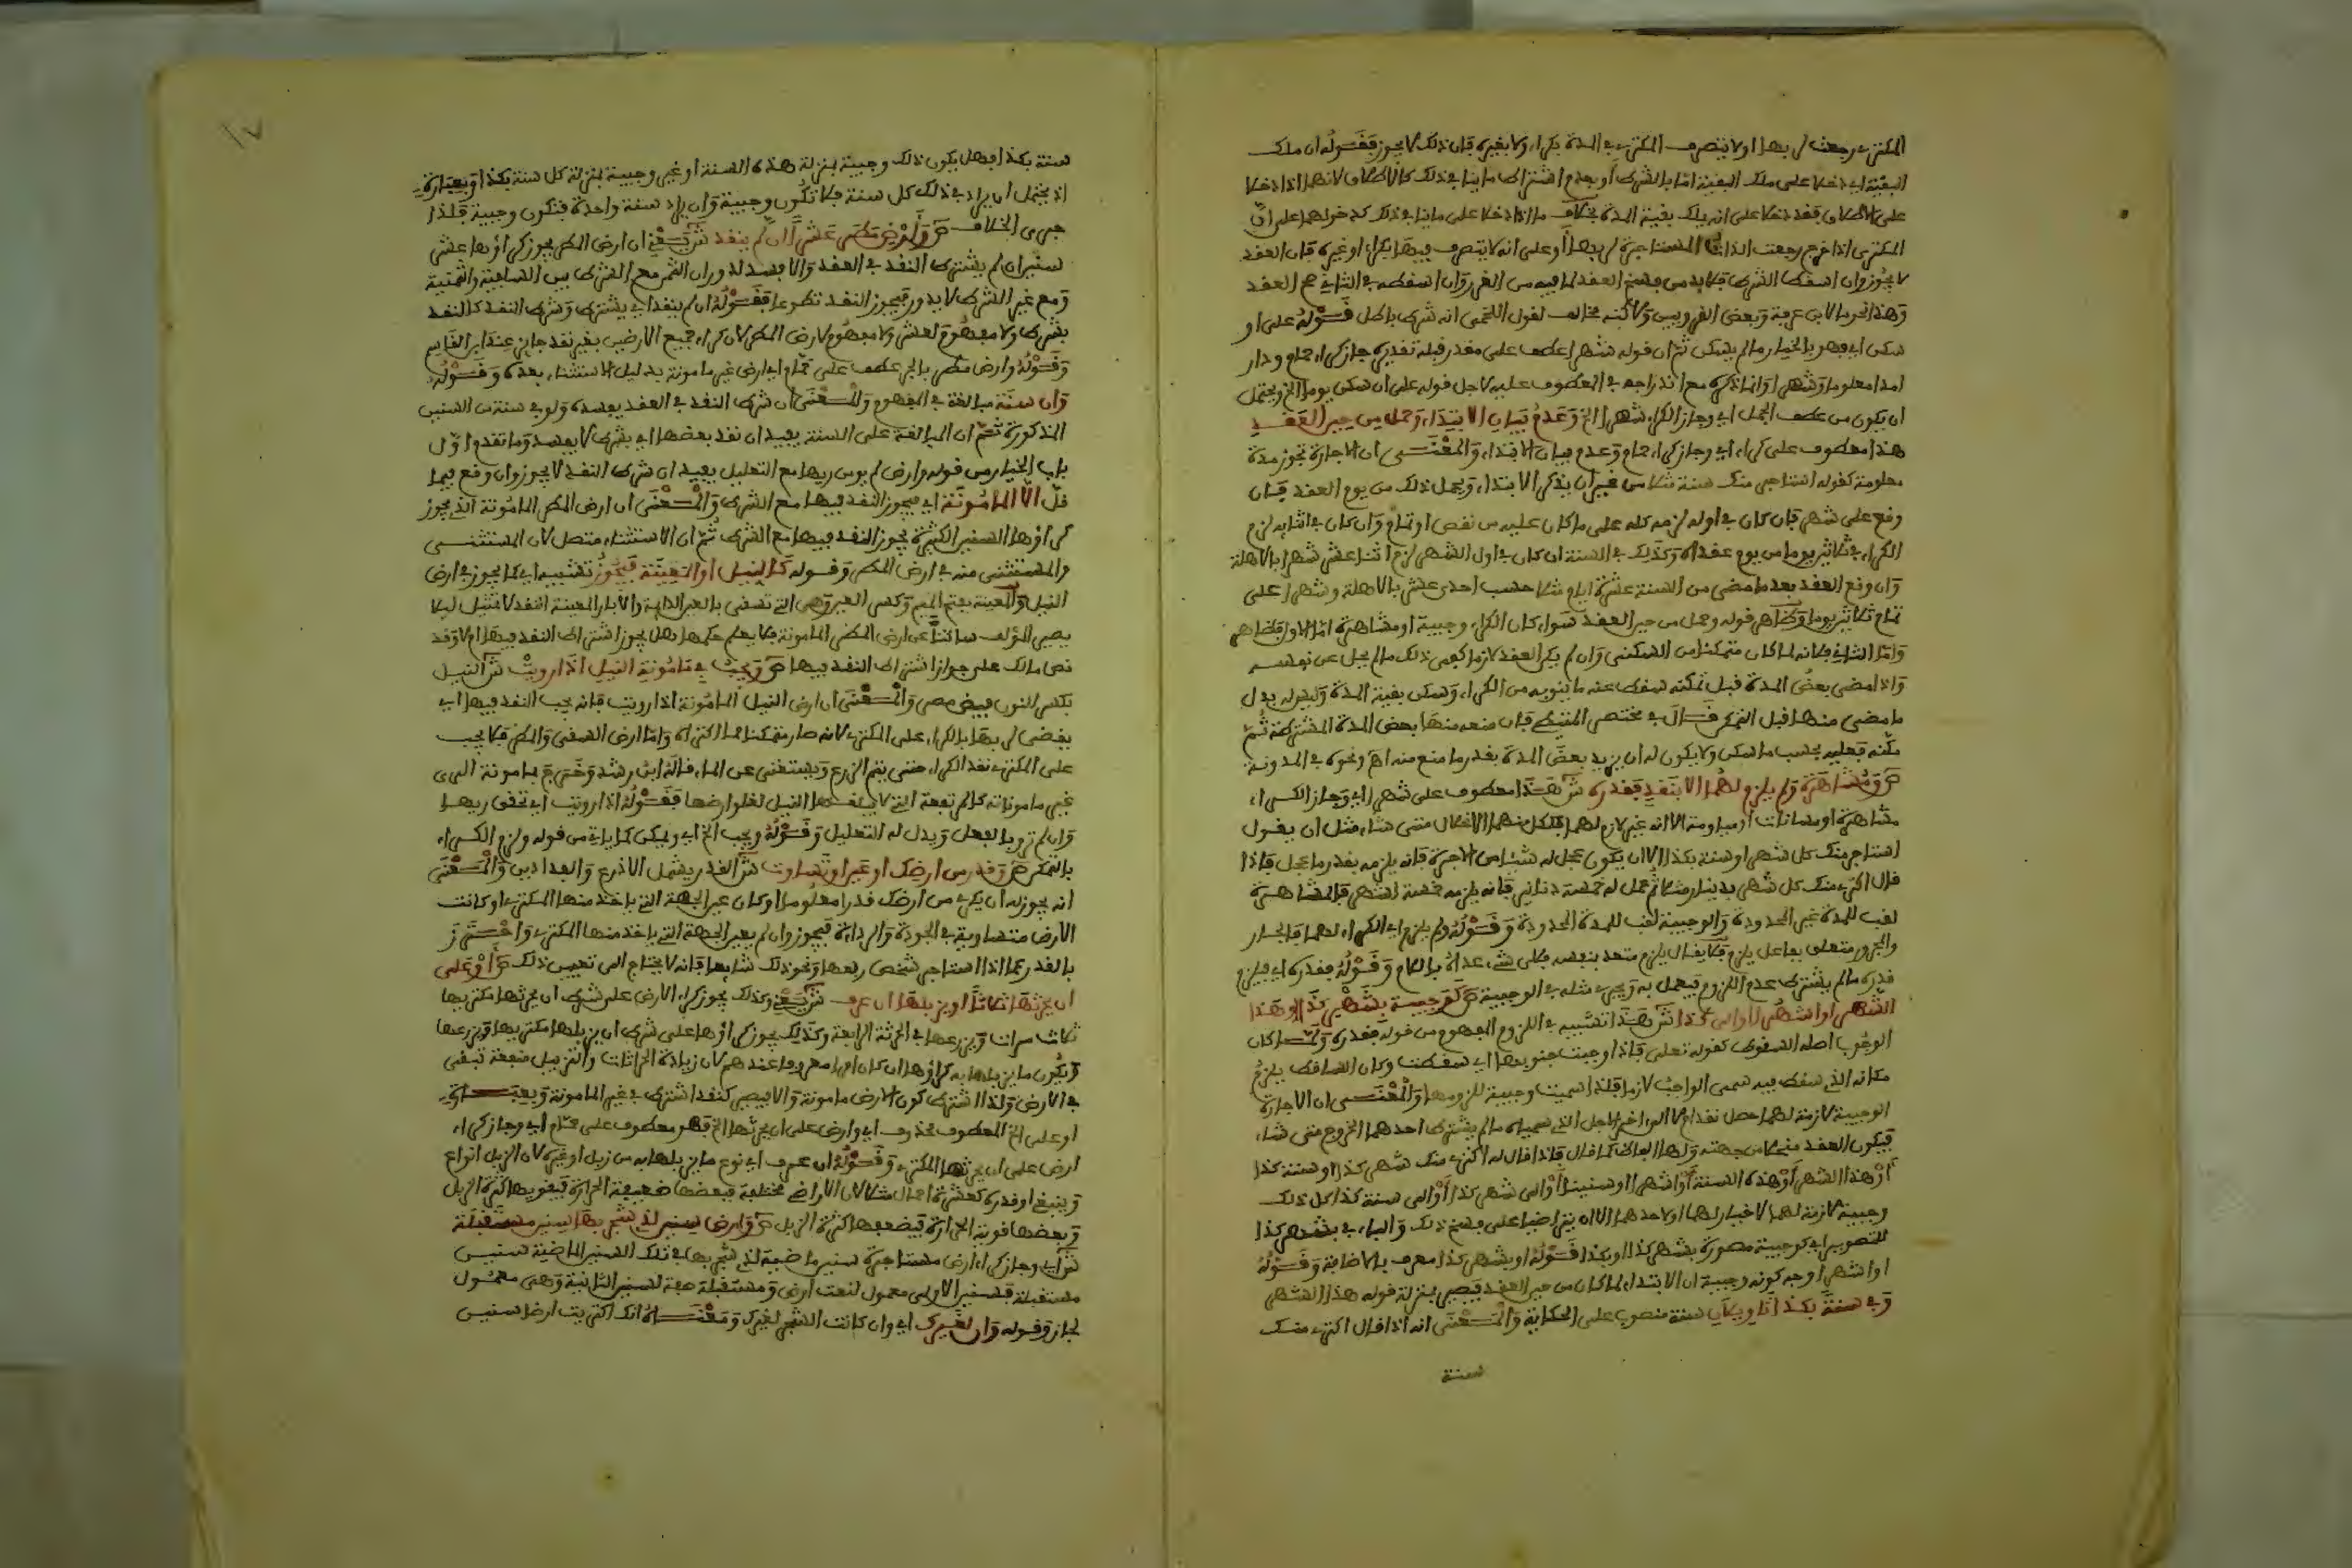 المكتري رجعت لربها او لا يتصرف المكتري في المدة بكراء ولا بغيره فان ذلك لا يجوز فقوله ان ملك
البقية اي دخلا على ملك البقية اما بالشرط او بعدم اشتراط ما ينافي ذلك كالاطلاق لانهما اذا دخلا
على الاطلاق فقد دخلا على انه يملك بقية المدة بخلاف ما اذا دخلا على ما ينافي ذلك كدخولهما على ان
المكتري اذا خرج رجعت الذات المستاجرة لربها او على انه لا يتصرف فيها بكراء او غيره فان العقد
لا يجوز وان اسقط الشرط فلا بد من فسخ العقد لما فيه من الغرر وان اسقطه في الثاني صح العقد
وهذا نحو ما لابن عرفة وبعض القرويين ولاكنه مخالف لقول اللخمي انه شرط باطل قوله على او
سكن اي فهو بالخيار ما لم يسكن ثم ان قوله شهرا عطف على مقدر قبله تقديره جاز كراء حمام ودار
امدا معلوما وشهرا وانما ذكره مع اندراجه في المعطوف عليه لاجل قوله على ان سكن يوما الخ ويحتمل
ان يكون من عطف الجمل اي وجاز الكراء شهرا الخ وعدم بيان الابتداء وحمل من حين العقد
هذا معطوف على كراء اي وجاز كراء حمام وعدم بيان الابتداء والمعنى ان الاجارة تجوز مدة
معلومة كقوله استاجر منك سنة مثلا من غير ان يذكر الابتداء ويحمل ذلك من يوم العقد فان
وقع على شهر فان كان في اوله لزمه كله على ما كان عليه من نقص او تمام وان كان في اثنائه لزم
الكراء في ثلاثين يوما من يوم عقداه وكذلك في السنة ان كان في اول الشهر لزم اثنا عشر شهرا بالاهلة
وان وقع العقد بعد ما مضى من السنة عشرة ايام مثلا حسب احدى عشر بالاهلة وشهرا على
تمام ثلاثين يوما وظاهر قوله وحمل من حين العقد سواء كان الكراء وجيبة او مشاهرة اما الاول فظاهر
واما الثاني فلانه لما كان متمكنا من السكنى وان لم يكن العقد لازما كفى ذلك ما لم يحل عن نفسه
واذا مضى بعض المدة قبل تمكنه سقط عنه ما ينوبه من الكراء وسكن بقية المدة وليس له بدل
ما مضى منها قبل التمكن قال في مختصر المتيطي فان منعه منها بعض المدة المشترطة ثم
مكنه فعليه بحسب ما سكن ولا يكون له ان يزيد بعض المدة بقدر ما منع منه اه ونحوه في المدونة
ص ومشاهرة ولم يلزم لهما الا بنقد فقدره ش هذا معطوف على شهرا اي وجاز الكراء
مشاهرة او مسانات او مياومة الا انه غير لازم لهما فلكل منهما الانحلال متى شاء مثل ان يقول
استاجر منك كل شهر او سنة بكذا الا ان يكون عجل له شيئا من الاجرة فانه يلزمه بقدر ما عجل فاذا
قال اكتري منك كل شهر بدينار مثلا ثم عمل له خمسة دنانير فانه يلزمه خمسة اشهر فالمشاهرة
لقب للمدة غير المحدودة والوجيبة لقب للمدة المحدودة وقوله ولم يلزم اي الكراء لهما فالجار
والمجرور متعلق بفاعل يلزم فلا يقال يلزم متعد بنفسه فلاي شيء عداه باللام وقوله فقدره اي فيلزم
قدره ما لم يشترط عدم اللزوم فيعمل به ويجري مثله في الوجيبة ص كوجيبة بشهر كذا او هذا
الشهر او اشهرا او الى كذا ش هذا تشبيه في اللزوم المفهوم من قوله فقدره ولما كان
الوجوب اصله السقوط كقوله تعلى فاذا وجبت جنوبها اي سقطت وكان الساقط يلزم
مكانه الذي سقط فيه سمي الواجب لازما فلذا سميت وجيبة للزومها والمعنى ان الاجارة
الوجيبة لازمة لهما حصل نقد ام لا الى اخر الاجل الذي سمياه ما لم يشترط احدهما الخروج متى شاء
فيكون العقد منحلا من جهته ولها الفاظ كما قال فاذا قال له اكتري منك شهر كذا او سنة كذا
او هذا الشهر او هذه السنة او اشهرا او سنينا او الى شهر كذا او الى سنة كذا كل ذلك
وجيبة لازمة لهما لا خيار لهما او لاحدهما الا ان يتراضيا على فسخ ذلك والباء في بشهر كذا
للتصوير اي كوجيبة مصورة بشهر كذا او بكذا فقوله او بشهر كذا معرف بالاضافة وقوله
او اشهرا وجه كونه وجيبة ان الابتداء لما كان من حين العقد فيصير بمنزلة قوله هذا الشهر
وفي سنة بكذا تاويلان سنة منصوب على الحكاية والمعنى انه اذا قال اكتري منك
سنة
سنة بكذا فهل يكون ذلك وجيبة بمنزلة هذه السنة او غير وجيبة بمنزلة كل سنة بكذا وبعبارة
اذ يحتمل ان يراد في ذلك كل سنة فلا تكون وجيبة وان يراد سنة واحدة فتكون وجيبة فلذا
جرى الخلاف ص وارض مطر عشرا ان لم ينقد ش يعني ان ارض المطر يجوز كراؤها عشر
سنين ان لم يشترط النقد في العقد والا فسد لدوران الثمن مع الشرط بين السلفية والثمنية
ومع غير الشرط لا يدور فيجوز النقد تطوعا فقوله ان لم ينقد اي يشترط وشرط النقد كالنقد
بشرط ولا مفهوم لعشر ولا مفهوم لارض المطر لان كراء جميع الارضين بغير نقد جايز عند ابن القاسم
وقوله وارض مطر بالجر عطف على حمام اي ارض غير مامونة بدليل الاستثناء بعده وقوله
وان سنة مبالغة في المفهوم والمعنى ان شرط النقد في العقد يفسده ولو في سنة من السنين
المذكورة ثم ان المبالغة على السنة يفيد ان نقد بعضها اي بشرط لا يفسد وما تقدم اول
باب الخيار من قوله وارض لم يومن ريها مع التعليل يفيد ان شرط النقد لا يجوز وان وقع فيما
قل الا المامونة اي فيجوز النقد فيها مع الشرط والمعنى ان ارض المطر المامونة التي يجوز
كراؤها السنين الكثيرة يجوز النقد فيها مع الشرط ثم ان الاستثناء متصل لان المستثنى
والمستثنى منه في ارض المطر وقوله كالنيل او المعينة فيجوز تشبيه اي كما يجوز في ارض
النيل والمعينة بفتح الميم وكسر العين وهي التي تسقى بالعين الدايمة والابار المعينة النقد لا تمثيل ليلا
يصير المؤلف ساكتا عن ارض المطر المامونة فلا يعلم حكمها هل يجوز اشتراط النقد فيها ام لا وقد
نص مالك على جواز اشتراط النقد فيها ص ويجب في مامونة النيل اذا رويت ش النيل
بكسر النون فيض مصر والمعنى ان ارض النيل المامونة اذا رويت فانه يجب النقد فيها اي
يقضى لربها بالكراء على المكتري لانه صار متمكنا لما اكتراه واما ارض السقي والمطر فلا يجب
على المكتري نقد الكراء حتى يتم الزرع ويستغني عن الماء قاله ابن رشد وخرج بمامونة الري
غير مامونته كالمرتفعة التي لا يبلغها النيل لعلو ارضها فقوله اذا رويت اي تحقق ريها
وان لم ترو بالفعل ويدل له التعليل وقوله ويجب الخ اي ويمكن كما ياتي من قوله ولزم الكراء
بالتمكن ص وقدر من ارضك ان عين او تساوت ش القدر يشمل الاذرع والفدادين والمعنى
انه يجوز له ان يكري من ارضك قدرا معلوما او كان عين الجهة التي ياخذ منها المكتري او كانت
الارض متساوية في الجودة والرداءة فيجوز وان لم يعين الجهة التي ياخذ منها المكتري واحترز
بالقدر عما اذا استاجر شخص ربعها ونحو ذلك شايعا فانه لا يحتاج الى تعيين ذلك ص او على
ان يحرثها ثلاثا او يزبلها ان عرف ش يعني وكذلك يجوز كراء الارض على شرط ان يحرثها مكتريها
ثلاث مرات ويزرعها في الحرثة الرابعة وكذلك يجوز كراؤها على شرط ان يزبلها مكتريها ويزرعها
ويكون ما يزبلها به كراؤها ان كان امرا معروفا عندهم لان زيادة الحراثات والتزبيل منفعة تبقى
في الارض ولذا اشترط كون الارض مامونة والا فيصير كنقد اشترط في غير المامونة وبعبارة
او على الخ المعطوف محذوف اي وارض على ان يحرثها الخ فهو معطوف على حمام اي وجاز كراء
ارض على ان يحرثها المكتري وقوله ان عرف اي نوع ما يزبلها به من زبل او غيره لان الزبل انواع
وينبغي او قدره كعشرة احمال مثلا لان الاراضي مختلفة فبعضها ضعيفة الحرارة فيقويها كثرة الزبل
وبعضها قوية الحرارة فيضعفها كثرة الزبل ص وارض سنين لذي شجر بها سنين مستقبلة
ش اي وجاز كراء ارض مستاجرة سنين ماضية لذي شجر بها في تلك السنين الماضية سنين
مستقبلة فسنين الاولى معمول لنعت ارض ومستقبلة صفة لسنين الثانية وهي معمول
لجاز وقوله وان لغيرك اي وان كانت الشجر لغيرك ومعناه انك اكتريت ارضا سنين